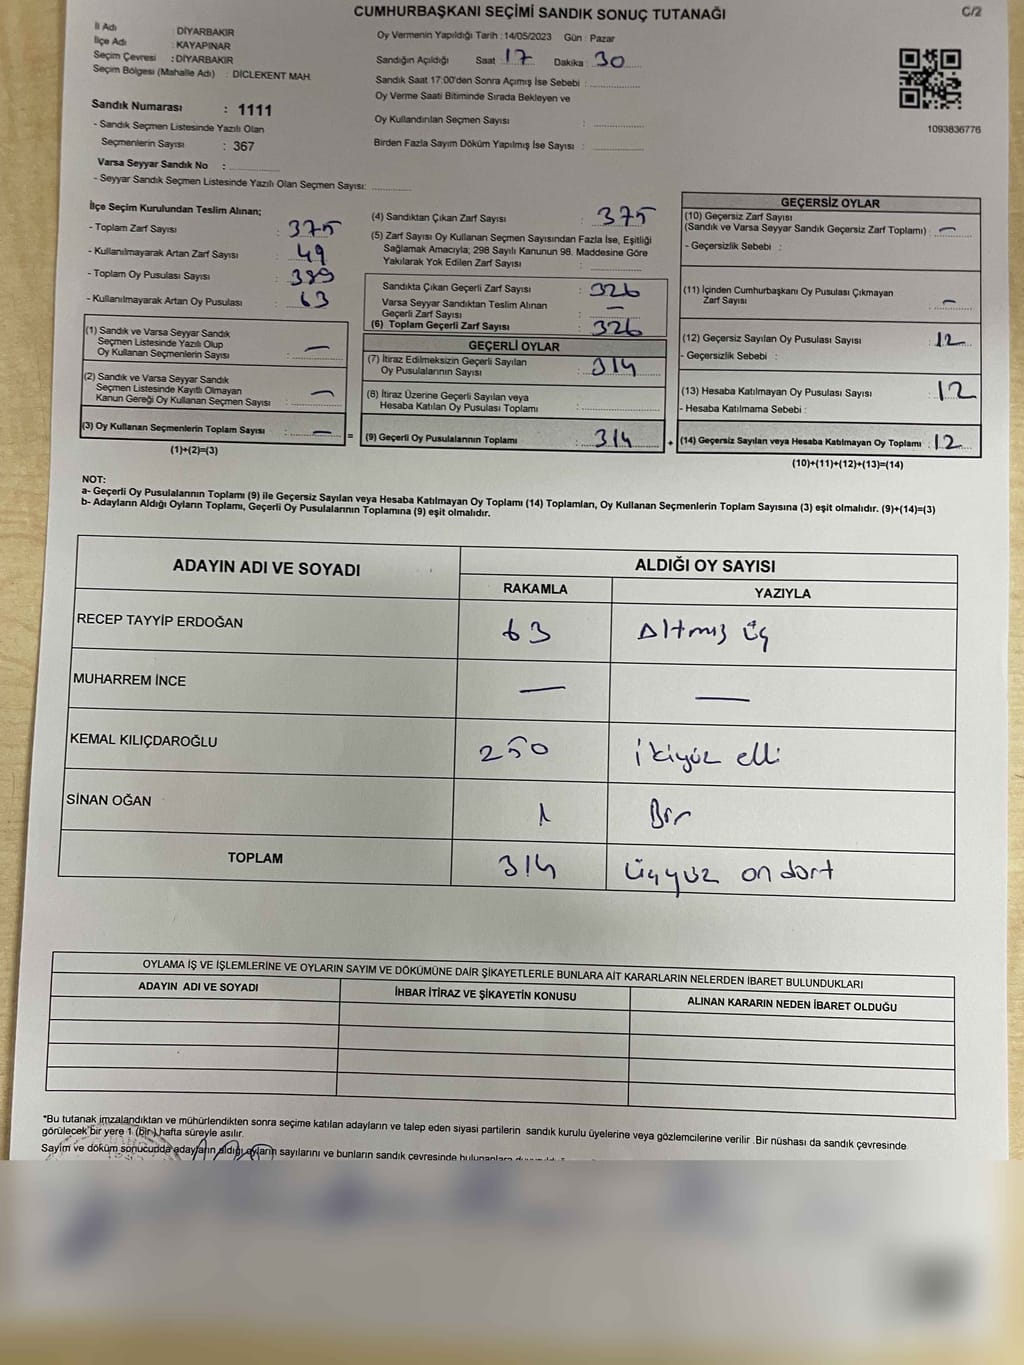 CUMHURBAŞKANI SEÇİMİ SANDIK SONUÇ TUTANAĞI
C/2
İl Adı : DİYARBAKIR
İlçe Adı : KAYAPINAR
Seçim Çevresi : DİYARBAKIR
Seçim Bölgesi (Mahalle Adı) : DICLEKENT MAH.
Oy Vermenin Yapıldığı Tarih : 14/05/2023 Gün : Pazar
Sandığın Açıldığı Saat : 17 Dakika : 30
Sandık Saat 17:00'den Sonra Açımış İse Sebebi :
Oy Verme Saati Bitiminde Sırada Bekleyen ve
Oy Kullandırılan Seçmen Sayısı :
Birden Fazla Sayım Döküm Yapılmış İse Sayısı :
1093836776
Sandık Numarası : 1111
- Sandık Seçmen Listesinde Yazılı Olan
Seçmenlerin Sayısı : 367
Varsa Seyyar Sandık No :
- Seyyar Sandık Seçmen Listesinde Yazılı Olan Seçmen Sayısı:
İlçe Seçim Kurulundan Teslim Alınan;
- Toplam Zarf Sayısı : 375
- Kullanılmayarak Artan Zarf Sayısı : 49
- Toplam Oy Pusulası Sayısı : 389
- Kullanılmayarak Artan Oy Pusulası : 63
(1) Sandık ve Varsa Seyyar Sandık
Seçmen Listesinde Yazılı Olup
Oy Kullanan Seçmenlerin Sayısı : —
(2) Sandık ve Varsa Seyyar Sandık
Seçmen Listesinde Kayıtlı Olmayan
Kanun Gereği Oy Kullanan Seçmen Sayısı : —
(3) Oy Kullanan Seçmenlerin Toplam Sayısı : —
(1)+(2)=(3)
=
(4) Sandıktan Çıkan Zarf Sayısı : 375
(5) Zarf Sayısı Oy Kullanan Seçmen Sayısından Fazla İse, Eşitliği
Sağlamak Amacıyla; 298 Sayılı Kanunun 98. Maddesine Göre
Yakılarak Yok Edilen Zarf Sayısı :
Sandıkta Çıkan Geçerli Zarf Sayısı : 326
Varsa Seyyar Sandıktan Teslim Alınan
Geçerli Zarf Sayısı : —
(6) Toplam Geçerli Zarf Sayısı : 326
GEÇERLİ OYLAR
(7) İtiraz Edilmeksizin Geçerli Sayılan
Oy Pusulalarının Sayısı : 314
(8) İtiraz Üzerine Geçerli Sayılan veya
Hesaba Katılan Oy Pusulası Toplamı :
(9) Geçerli Oy Pusulalarının Toplamı : 314
+
GEÇERSİZ OYLAR
(10) Geçersiz Zarf Sayısı
(Sandık ve Varsa Seyyar Sandık Geçersiz Zarf Toplamı) : —
- Geçersizlik Sebebi :
(11) İçinden Cumhurbaşkanı Oy Pusulası Çıkmayan
Zarf Sayısı : —
(12) Geçersiz Sayılan Oy Pusulası Sayısı : 12
- Geçersizlik Sebebi :
(13) Hesaba Katılmayan Oy Pusulası Sayısı : 12
- Hesaba Katılmama Sebebi :
(14) Geçersiz Sayılan veya Hesaba Katılmayan Oy Toplamı : 12
(10)+(11)+(12)+(13)=(14)
NOT:
a- Geçerli Oy Pusulalarının Toplamı (9) ile Geçersiz Sayılan veya Hesaba Katılmayan Oy Toplamı (14) Toplamları, Oy Kullanan Seçmenlerin Toplam Sayısına (3) eşit olmalıdır. (9)+(14)=(3)
b- Adayların Aldığı Oyların Toplamı, Geçerli Oy Pusulalarının Toplamına (9) eşit olmalıdır.
ADAYIN ADI VE SOYADI
ALDIĞI OY SAYISI
RAKAMLA
YAZIYLA
RECEP TAYYİP ERDOĞAN 63 Altmış üç
MUHARREM İNCE — —
KEMAL KILIÇDAROĞLU 250 ikiyüz elli
SİNAN OĞAN 1 Bir
TOPLAM 314 üçyüz on dört
OYLAMA İŞ VE İŞLEMLERİNE VE OYLARIN SAYIM VE DÖKÜMÜNE DAİR ŞİKAYETLERLE BUNLARA AİT KARARLARIN NELERDEN İBARET BULUNDUKLARI
ADAYIN ADI VE SOYADI
İHBAR İTİRAZ VE ŞİKAYETİN KONUSU
ALINAN KARARIN NEDEN İBARET OLDUĞU
*Bu tutanak imzalandıktan ve mühürlendikten sonra seçime katılan adayların ve talep eden siyasi partilerin sandık kurulu üyelerine veya gözlemcilerine verilir .Bir nüshası da sandık çevresinde
görülecek bir yere 1 (bir) hafta süreyle asılır.
Sayım ve döküm sonucunda adayların aldığı oyların sayılarını ve bunların sandık çevresinde bulunanlara